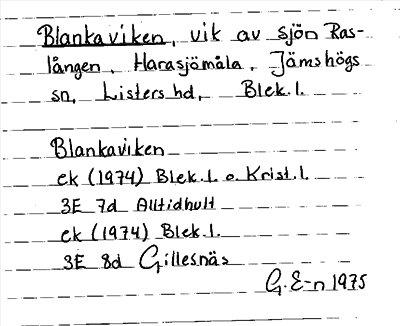 Blankaviken, vik av sjön Ras-
lången, Harasjömåla, Jämshögs
sn, Listers hd, Blek. l.
Blankaviken
ek (1974) Blek. l. o. Krist. l.
3E 7d Alltidhult
ek (1974) Blek. l.
3E 8d Gillesnäs
G. E-n 1975